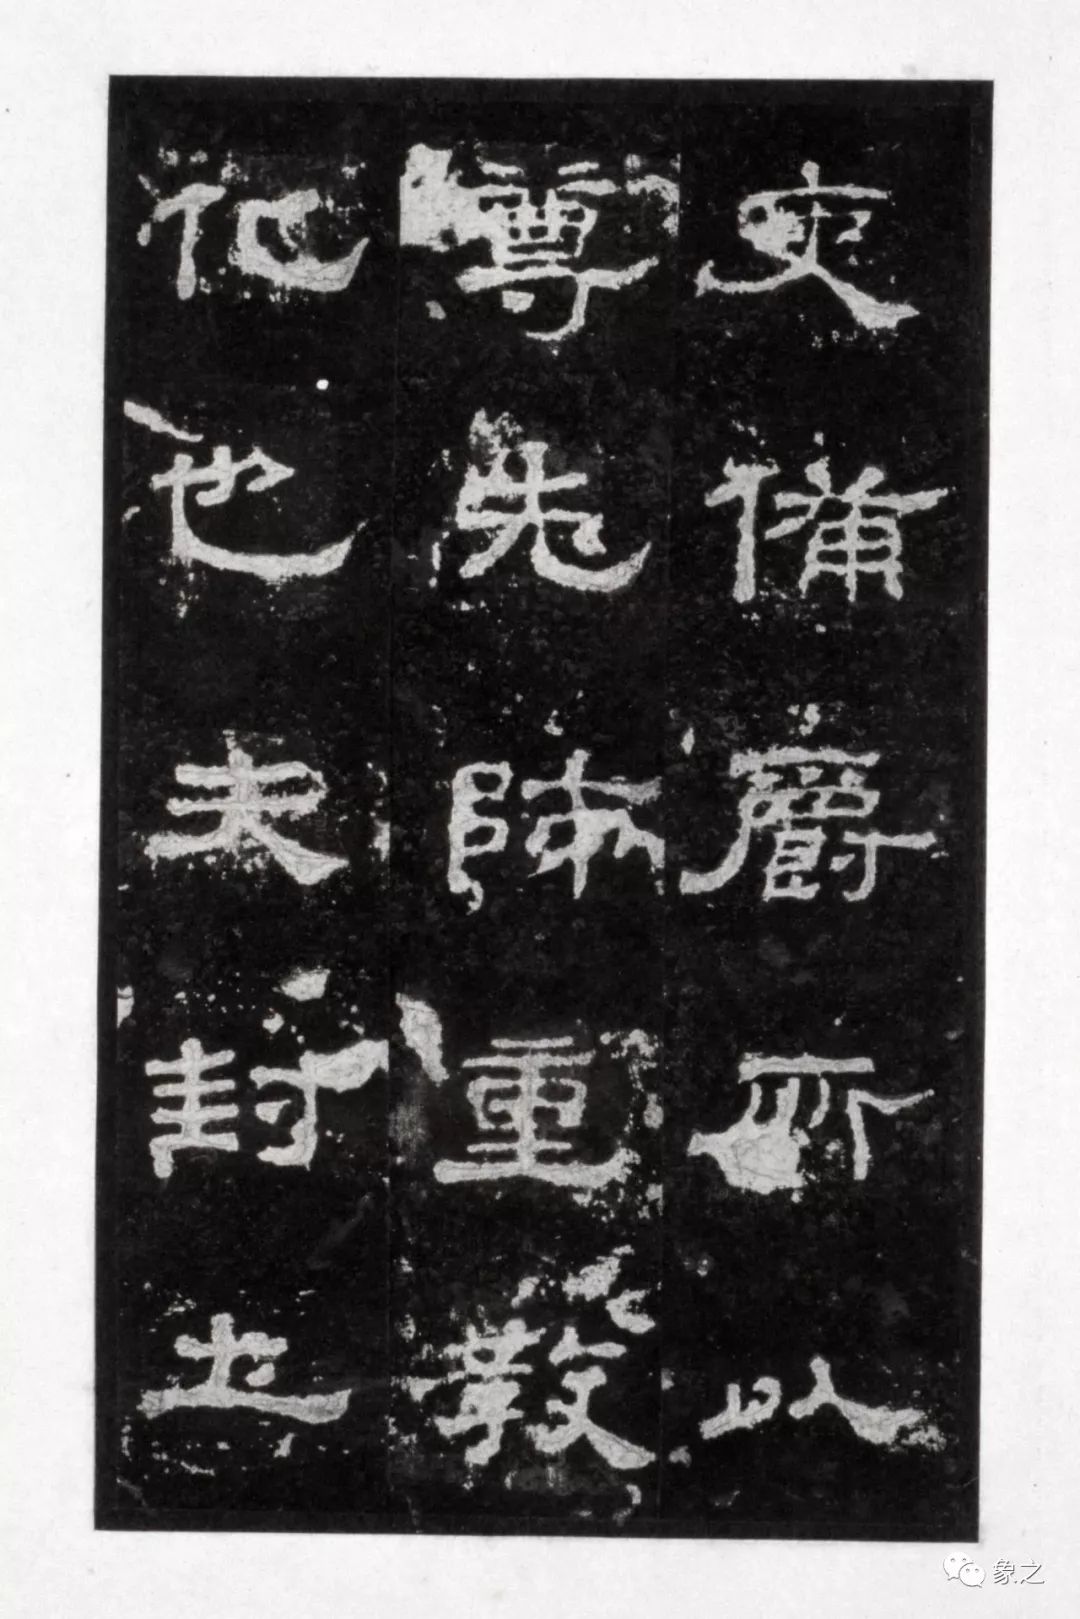 吏備爵所以
尊先師重教
化也夫封土
象之